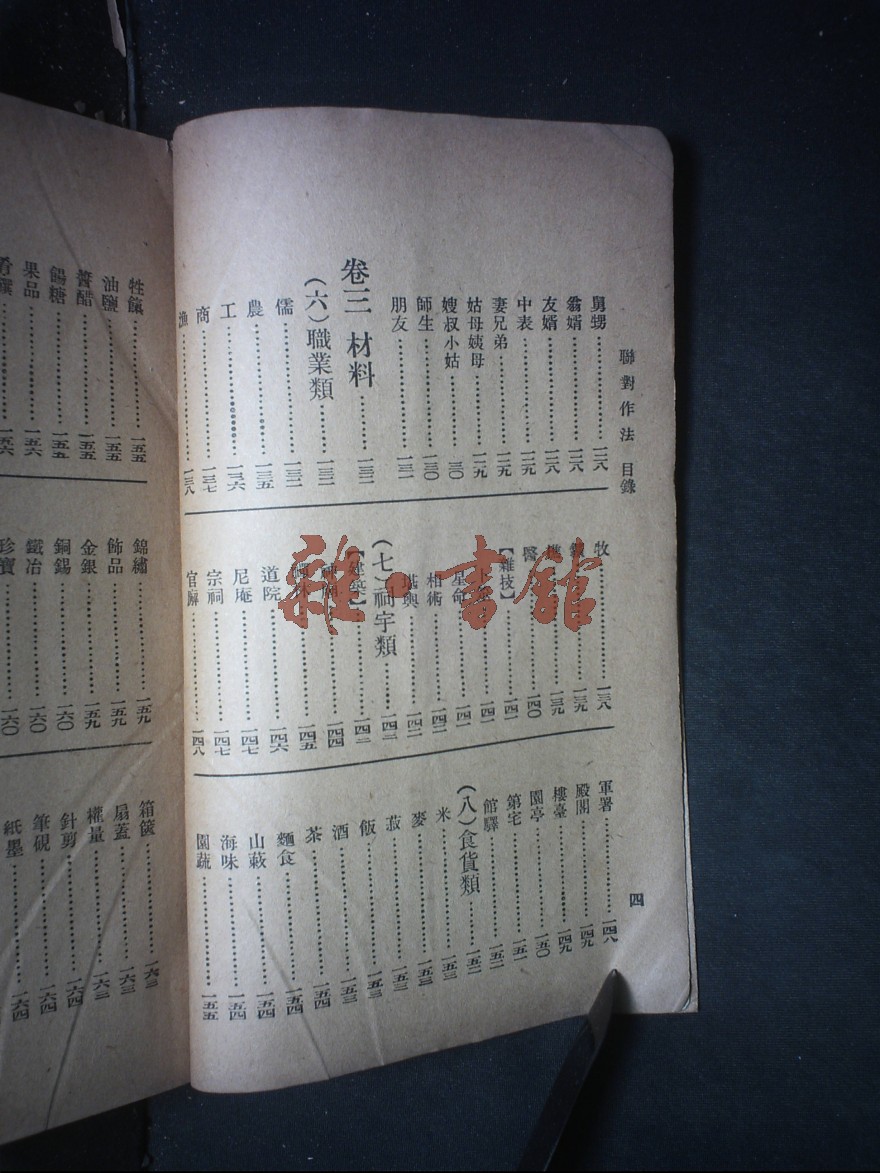 聯對作法 目錄
四
舅甥……一二八
翁婿……一二八
友婿……一二八
中表……一二九
妻兄弟……一二九
姑母姨母……一二九
嫂叔小姑……一三〇
師生……一三〇
朋友……一三一
卷三 材料……一三二
(六)職業類……一三二
儒……一三二
農……一三五
工……一三六
商……一三七
漁……一三八
牧……一三八
一三九
一三九
醫……一四〇
【雜技】……一四一
一四一
星命……一四一
相術……一四二
堪輿……一四二
(七)祠宇類……一四三
【建築】……一四三
一四四
一四五
道院……一四六
尼庵……一四七
宗祠……一四七
官廨……一四八
軍署……一四八
殿閣……一四九
樓臺……一四九
園亭……一五〇
第宅……一五一
館驛……一五一
(八)食貨類……一五二
米……一五三
麥……一五三
菽……一五三
飯……一五三
酒……一五三
茶……一五四
麵食……一五四
山蔌……一五四
海味……一五四
園蔬……一五五
牲餼……一五五
油鹽……一五五
醬醋……一五五
餳糖……一五五
果品……一五六
肴饌……一五六
錦繡……一五九
飾品……一五九
金銀……一五九
銅錫……一六〇
鐵冶……一六〇
珍寶……一六〇
箱篋……一六三
扇蓋……一六三
權量……一六三
針剪……一六四
筆硯……一六四
紙墨……一六四
雜·書館